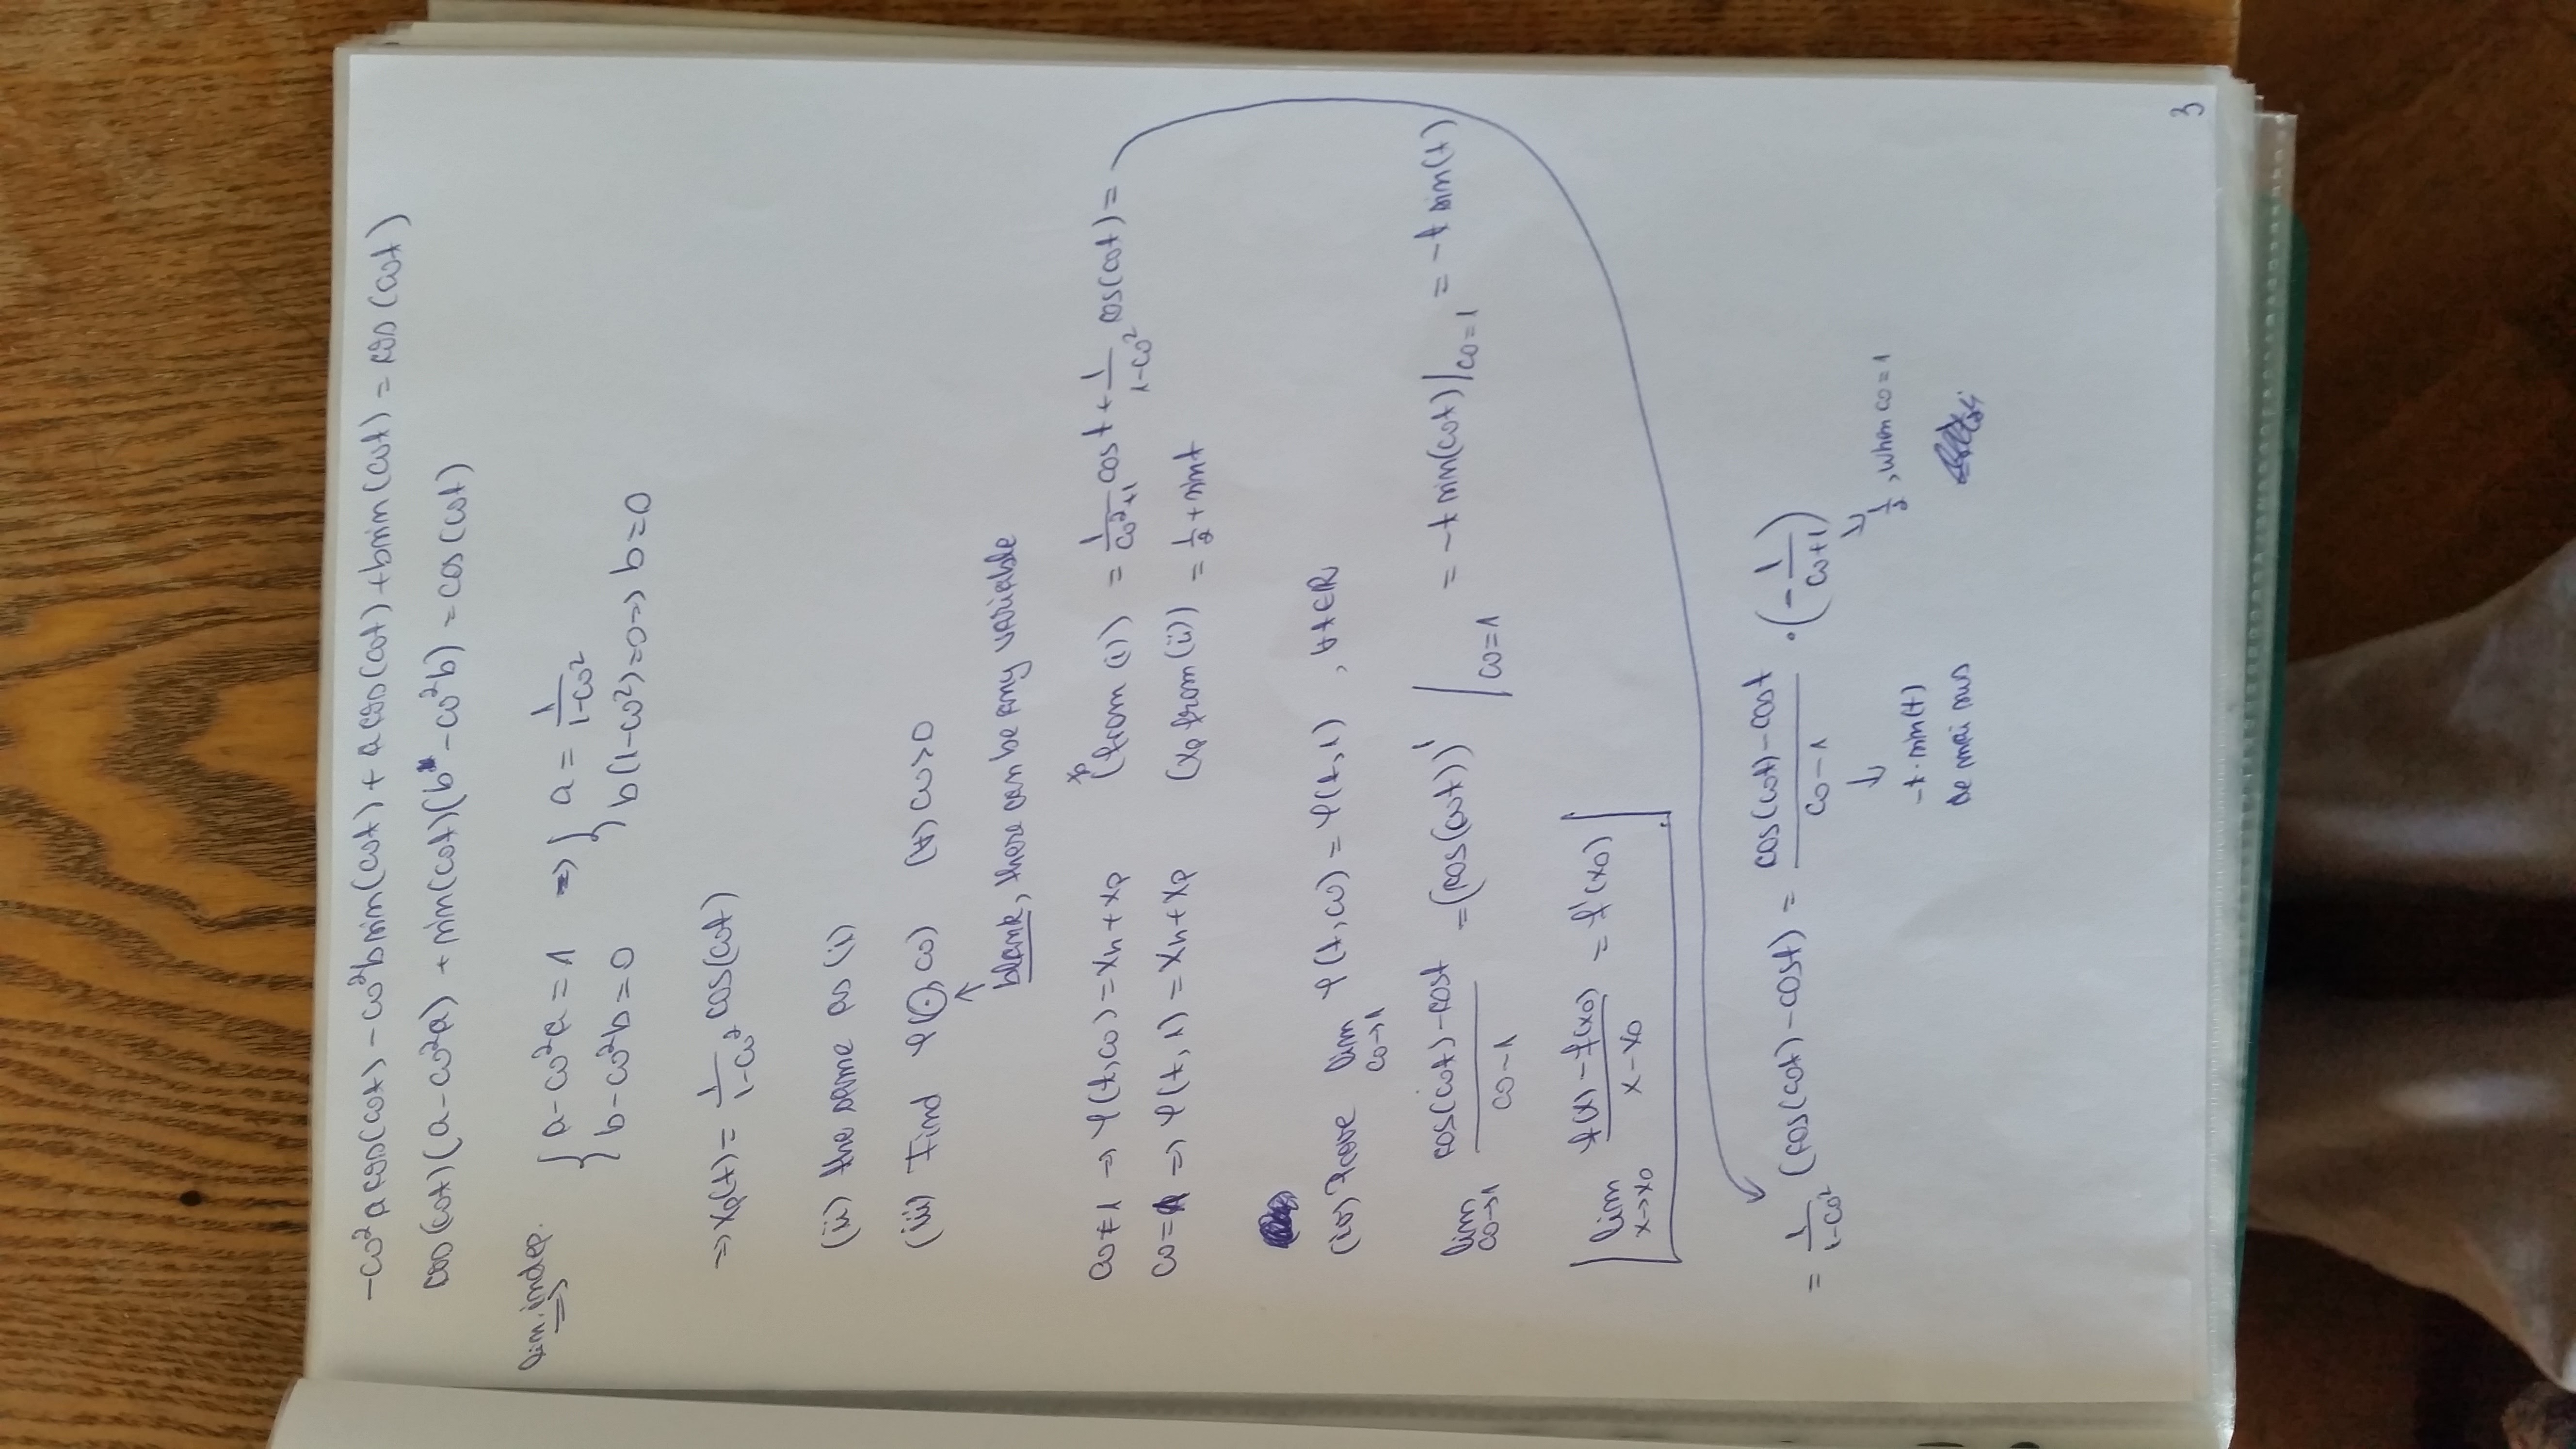 -ω²a cos(ωt) - ω²b sin(ωt) + a cos(ωt) + b sin(ωt) = cos(ωt)
cos(ωt)(a - ω²a) + sin(ωt)(b - ω²b) = cos(ωt)
lin. indep. ⇒ { a - ω²a = 1 ⇒ { a = 1/(1-ω²)
{ b - ω²b = 0 { b(1-ω²) = 0 => b = 0
=> xp(t) = 1/(1-ω²) cos(ωt)
(ii) the same as (i)
(iii) Find φ(·, ω) (∀) ω > 0
↑
blank, there can be any variable
ω ≠ 1 => φ(t, ω) = xh + xp (xp from (i)) = 1/(ω²+1) cos t + 1/(1-ω²) cos(ωt) =
ω = 1 => φ(t, 1) = xh + xp (xp from (ii)) = 1/2 + sin t
(iv) Prove lim ω→1 φ(t, ω) = φ(t, 1) , ∀ t ∈ ℝ
lim ω→1 (cos(ωt) - cos t)/(ω - 1) = (cos(ωt))' / ω=1 = -t sin(ωt) / ω=1 = -t sin(t)
lim x→x0 (f(x) - f(x0))/(x - x0) = f'(x0)
= 1/(1-ω²) (cos(ωt) - cos t) = (cos(ωt) - cos t)/(ω - 1) · (- 1/(ω+1))
↓ ↓
1/2, when ω = 1
-t · sin(t)
de mai sus
3